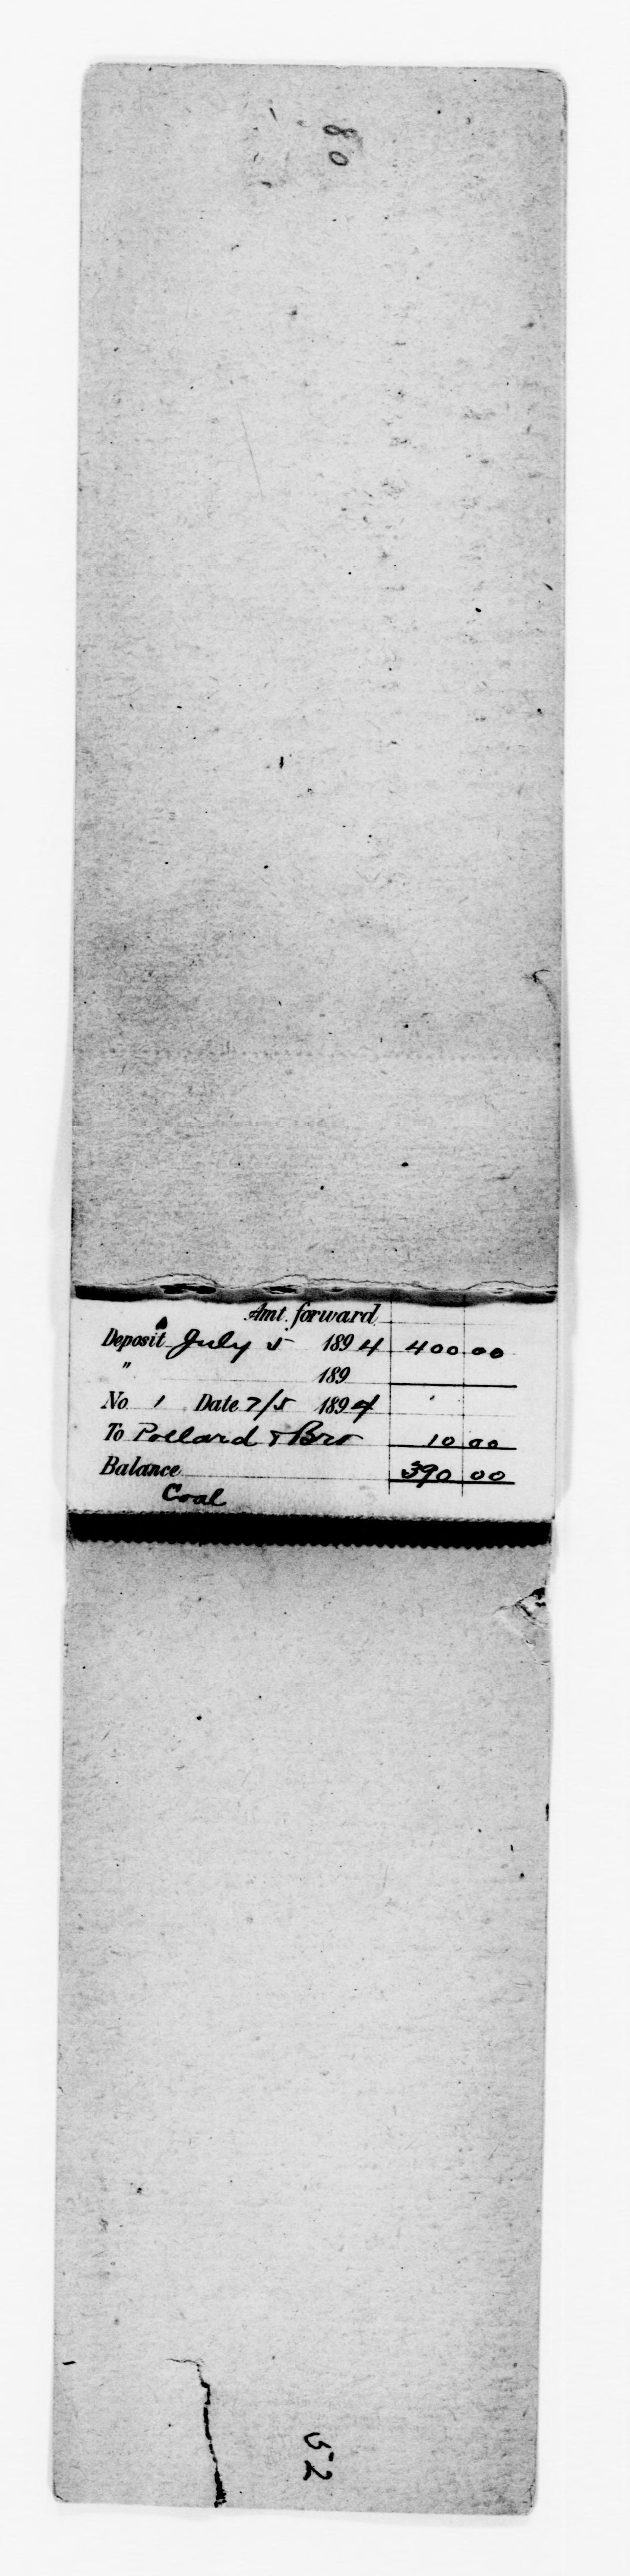 80
Amt. forward
Deposit July 5 1894 400 00
" 189
No. 1 Date 7/5 1894
To Pollard & Bro 10 00
Balance 390 00
Coal
52